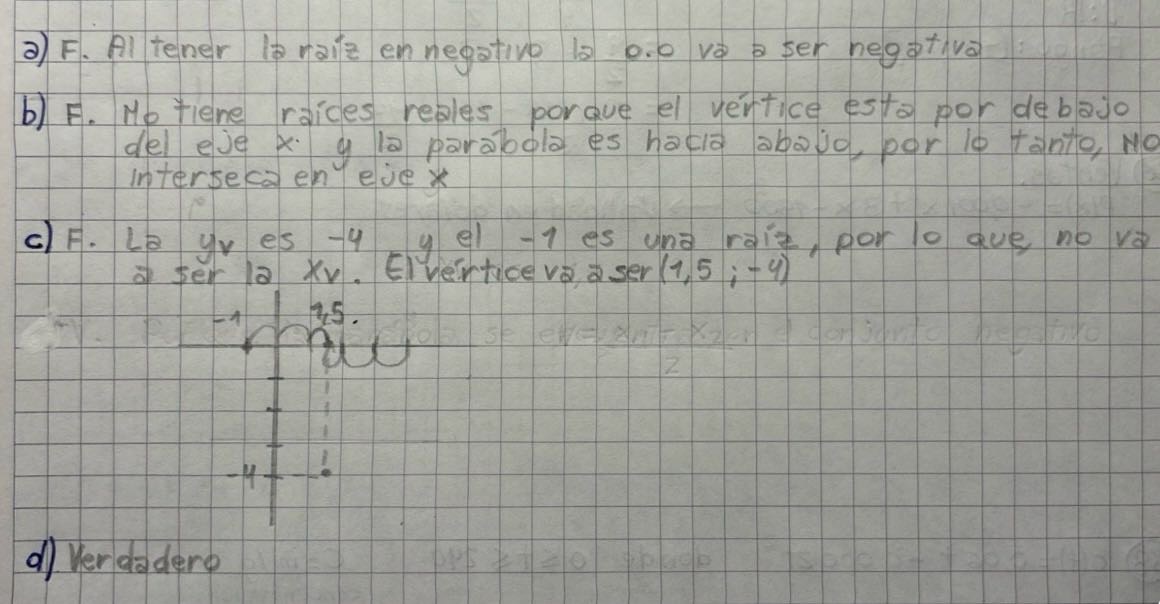 a) F. Al tener la raíz en negativo la o.o va a ser negativa
b) F. No tiene raíces reales porque el vértice esta por debajo
del eje x y la parabola es hacia abajo, por lo tanto, NO
interseca en eje x
c) F. La yv es -4 y el -1 es una raíz, por lo que, no va
a ser la xv. El vértice va a ser (1,5 ; -4)
-1 1,5.
-4
d) Verdadero